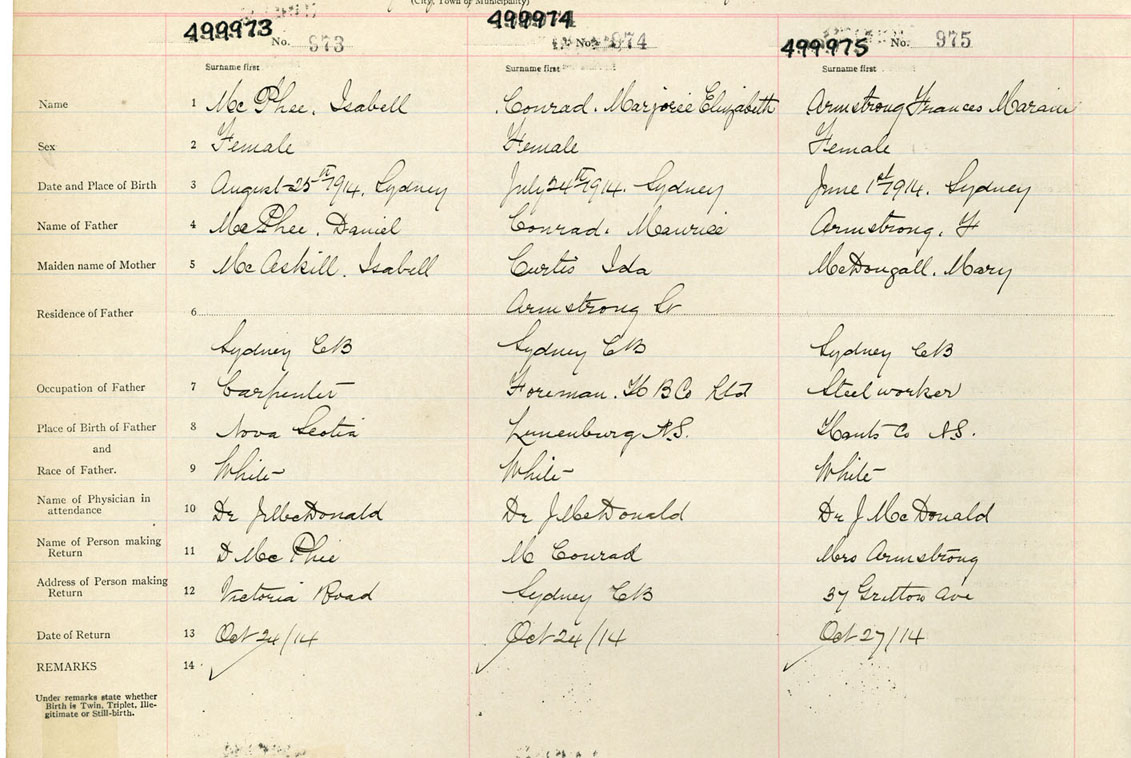 (City, Town or Municipality)
499973 499974 499975
No. 973 No. 974 No. 975
Surname first Surname first Surname first
Name 1 McPhee, Isabell Conrad. Marjorie Elizabeth Armstrong Frances
Sex 2 Female Female Female
Date and Place of Birth 3 August 25th 1914, Sydney July 24th 1914. Sydney June 1st 1914. Sydney
Name of Father 4 McPhee, Daniel Conrad. Maurice Armstrong, F
Maiden name of Mother 5 McAskill. Isabell Curtis Ida McDougall. Mary
Armstrong St
Residence of Father 6
Sydney CB Sydney CB Sydney CB
Occupation of Father 7 Carpenter Foreman. Co Ltd Steel worker
Place of Birth of Father 8 Nova Scotia Lunenburg N.S. Hants Co N.S.
and
Race of Father. 9 White White White
Name of Physician in
attendance 10 Dr McDonald Dr J McDonald Dr J McDonald
Name of Person making
Return 11 D McPhie M Conrad Mrs Armstrong
Address of Person making
Return 12 Victoria Road Sydney CB 37 Ave
Date of Return 13 Oct 24/14 Oct 24/14 Oct 27/14
REMARKS 14
Under remarks state whether
Birth is Twin, Triplet, Ille-
gitimate or Still-birth.